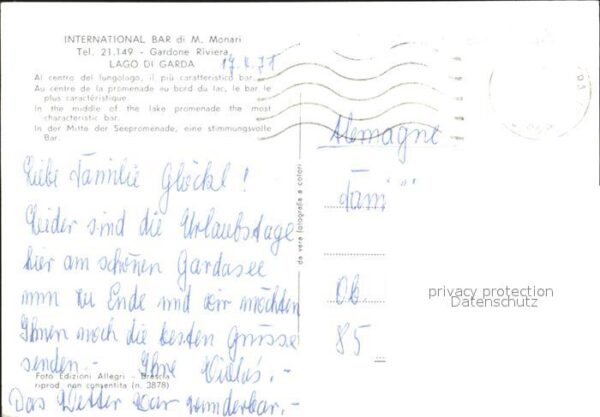 INTERNATIONAL BAR di M. Monari
Tel. 21.149 - Gardone Riviera
LAGO DI GARDA
Al centro del lungolago, il più caratteristico bar.
Au centre de la promenade au bord du lac, le bar le
plus caractéristique.
In the middle of the lake promenade the most
characteristic bar.
In der Mitte der Seepromenade, eine stimmungsvolle
Bar.
Liebe Familie Glöckl!
Leider sind die Urlaubstage
hier am schönen Gardasee
nun zu Ende und wir möchten
Ihnen noch die besten Grüsse
senden.- Ihre
Foto Edizioni Allegri - Brescia
riprod. non consentita (n. 3878)
Das Wetter war wunderbar.-
da vera fotografia a colori
Alemagne
Fam
Ob.
85
privacy protection
Datenschutz